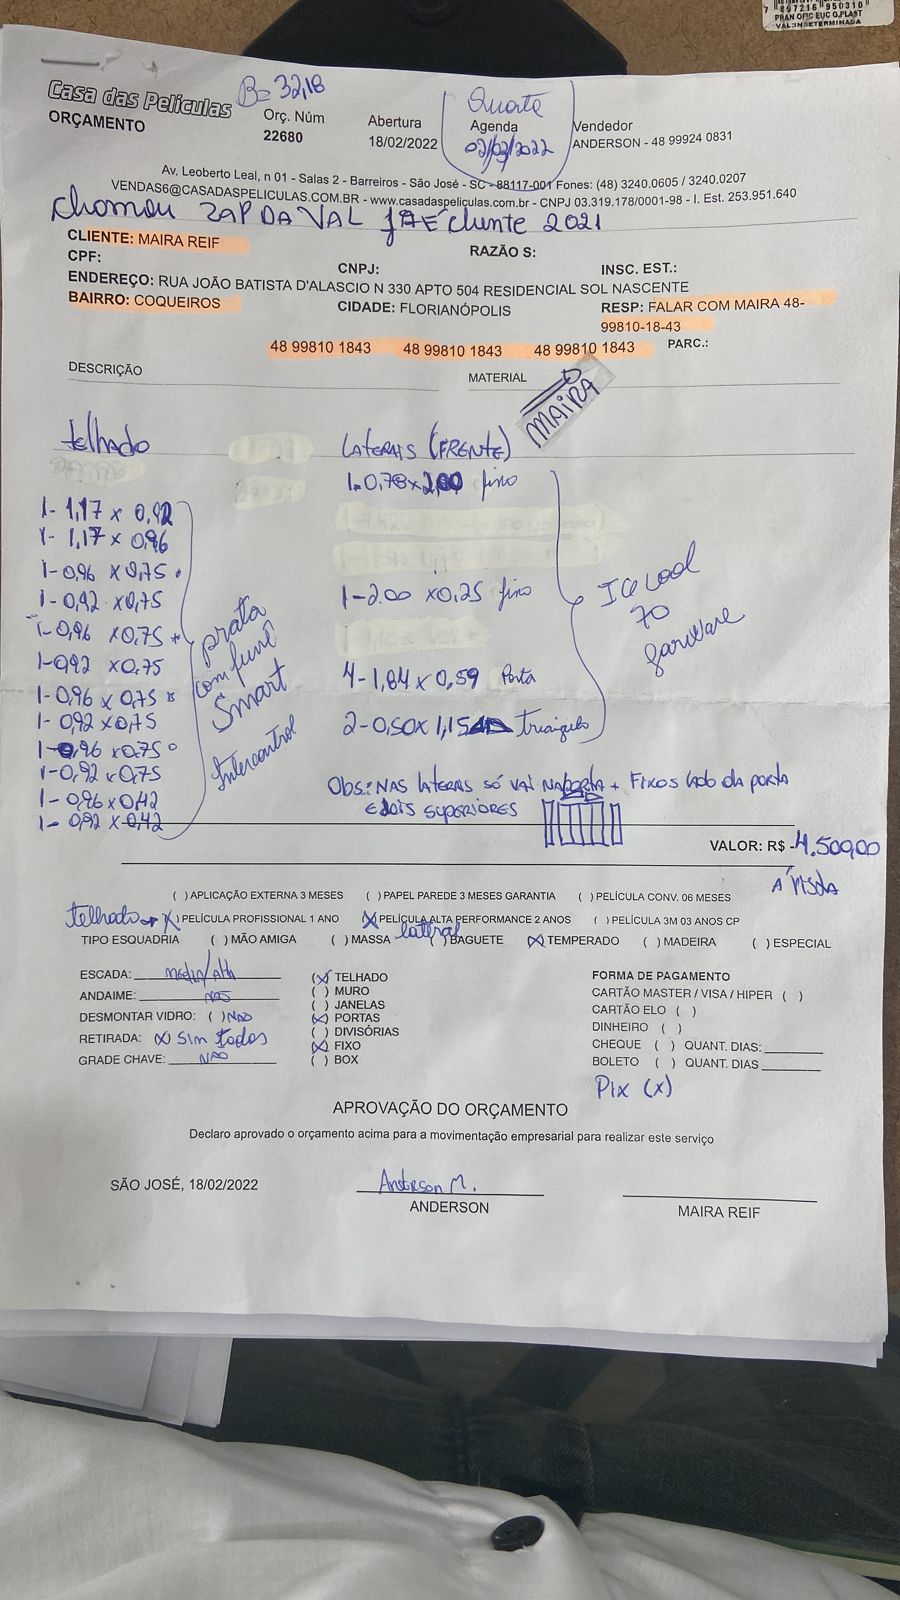 7 897216 950310
PRAN OFIC EUC G.PLAST
VAL:INDETERMINADA
B= 32,18
Casa das Películas
ORÇAMENTO
Orç. Núm
22680
Abertura
18/02/2022
Quarta
Agenda
02/03/2022
Vendedor
ANDERSON - 48 99924 0831
Av. Leoberto Leal, n 01 - Salas 2 - Barreiros - São José - SC - 88117-001 Fones: (48) 3240.0605 / 3240.0207
VENDAS6@CASADASPELICULAS.COM.BR - www.casadaspeliculas.com.br - CNPJ 03.319.178/0001-98 - I. Est. 253.951.640
chamou ZAP DA VAL JÁ É cliente 2021
CLIENTE: MAIRA REIF
RAZÃO S:
CPF:
CNPJ:
INSC. EST.:
ENDEREÇO: RUA JOÃO BATISTA D'ALASCIO N 330 APTO 504 RESIDENCIAL SOL NASCENTE
BAIRRO: COQUEIROS
CIDADE: FLORIANÓPOLIS
RESP: FALAR COM MAIRA 48-
99810-18-43
48 99810 1843 48 99810 1843 48 99810 1843 PARC.:
DESCRIÇÃO
MATERIAL
MAIRA
telhado
1- 1,17 x 0,92
1- 1,17 x 0,96
1- 0,96 x 0,75
1- 0,92 x 0,75
1- 0,96 x 0,75
1- 0,92 x 0,75
1- 0,96 x 0,75
1- 0,92 x 0,75
1- 0,96 x 0,75
1- 0,92 x 0,75
1- 0,96 x 0,42
1- 0,92 x 0,42
prata
com fumê
Smart
Intercontrol
LATERAIS (FRENTE)
1- 0,78 x 2,00 fixo
1- 2.00 x 0,25 fixo
4- 1,84 x 0,59 Porta
2- 0,50 x 1,15 triângulo
Ice cool
70
garware
Obs: NAS LATERAIS SÓ VAI NA PORTA + FIXOS LADO DA PORTA
E dois SUPERIORES
VALOR: R$ - 4.500,00
Á VISTA
( ) APLICAÇÃO EXTERNA 3 MESES ( ) PAPEL PAREDE 3 MESES GARANTIA ( ) PELÍCULA CONV. 06 MESES
telhado → (X) PELÍCULA PROFISSIONAL 1 ANO (X) PELÍCULA ALTA PERFORMANCE 2 ANOS ( ) PELÍCULA 3M 03 ANOS CP
lateral
TIPO ESQUADRIA ( ) MÃO AMIGA ( ) MASSA ( ) BAGUETE (X) TEMPERADO ( ) MADEIRA ( ) ESPECIAL
ESCADA: media/Alta
ANDAIME: NÃO
DESMONTAR VIDRO: ( ) NÃO
RETIRADA: (X) Sim todos
GRADE CHAVE: NÃO
(X) TELHADO
( ) MURO
( ) JANELAS
(X) PORTAS
( ) DIVISÓRIAS
(X) FIXO
( ) BOX
FORMA DE PAGAMENTO
CARTÃO MASTER / VISA / HIPER ( )
CARTÃO ELO ( )
DINHEIRO ( )
CHEQUE ( ) QUANT. DIAS:
BOLETO ( ) QUANT. DIAS
PIX (X)
APROVAÇÃO DO ORÇAMENTO
Declaro aprovado o orçamento acima para a movimentação empresarial para realizar este serviço
SÃO JOSÉ, 18/02/2022
Anderson M.
ANDERSON
MAIRA REIF